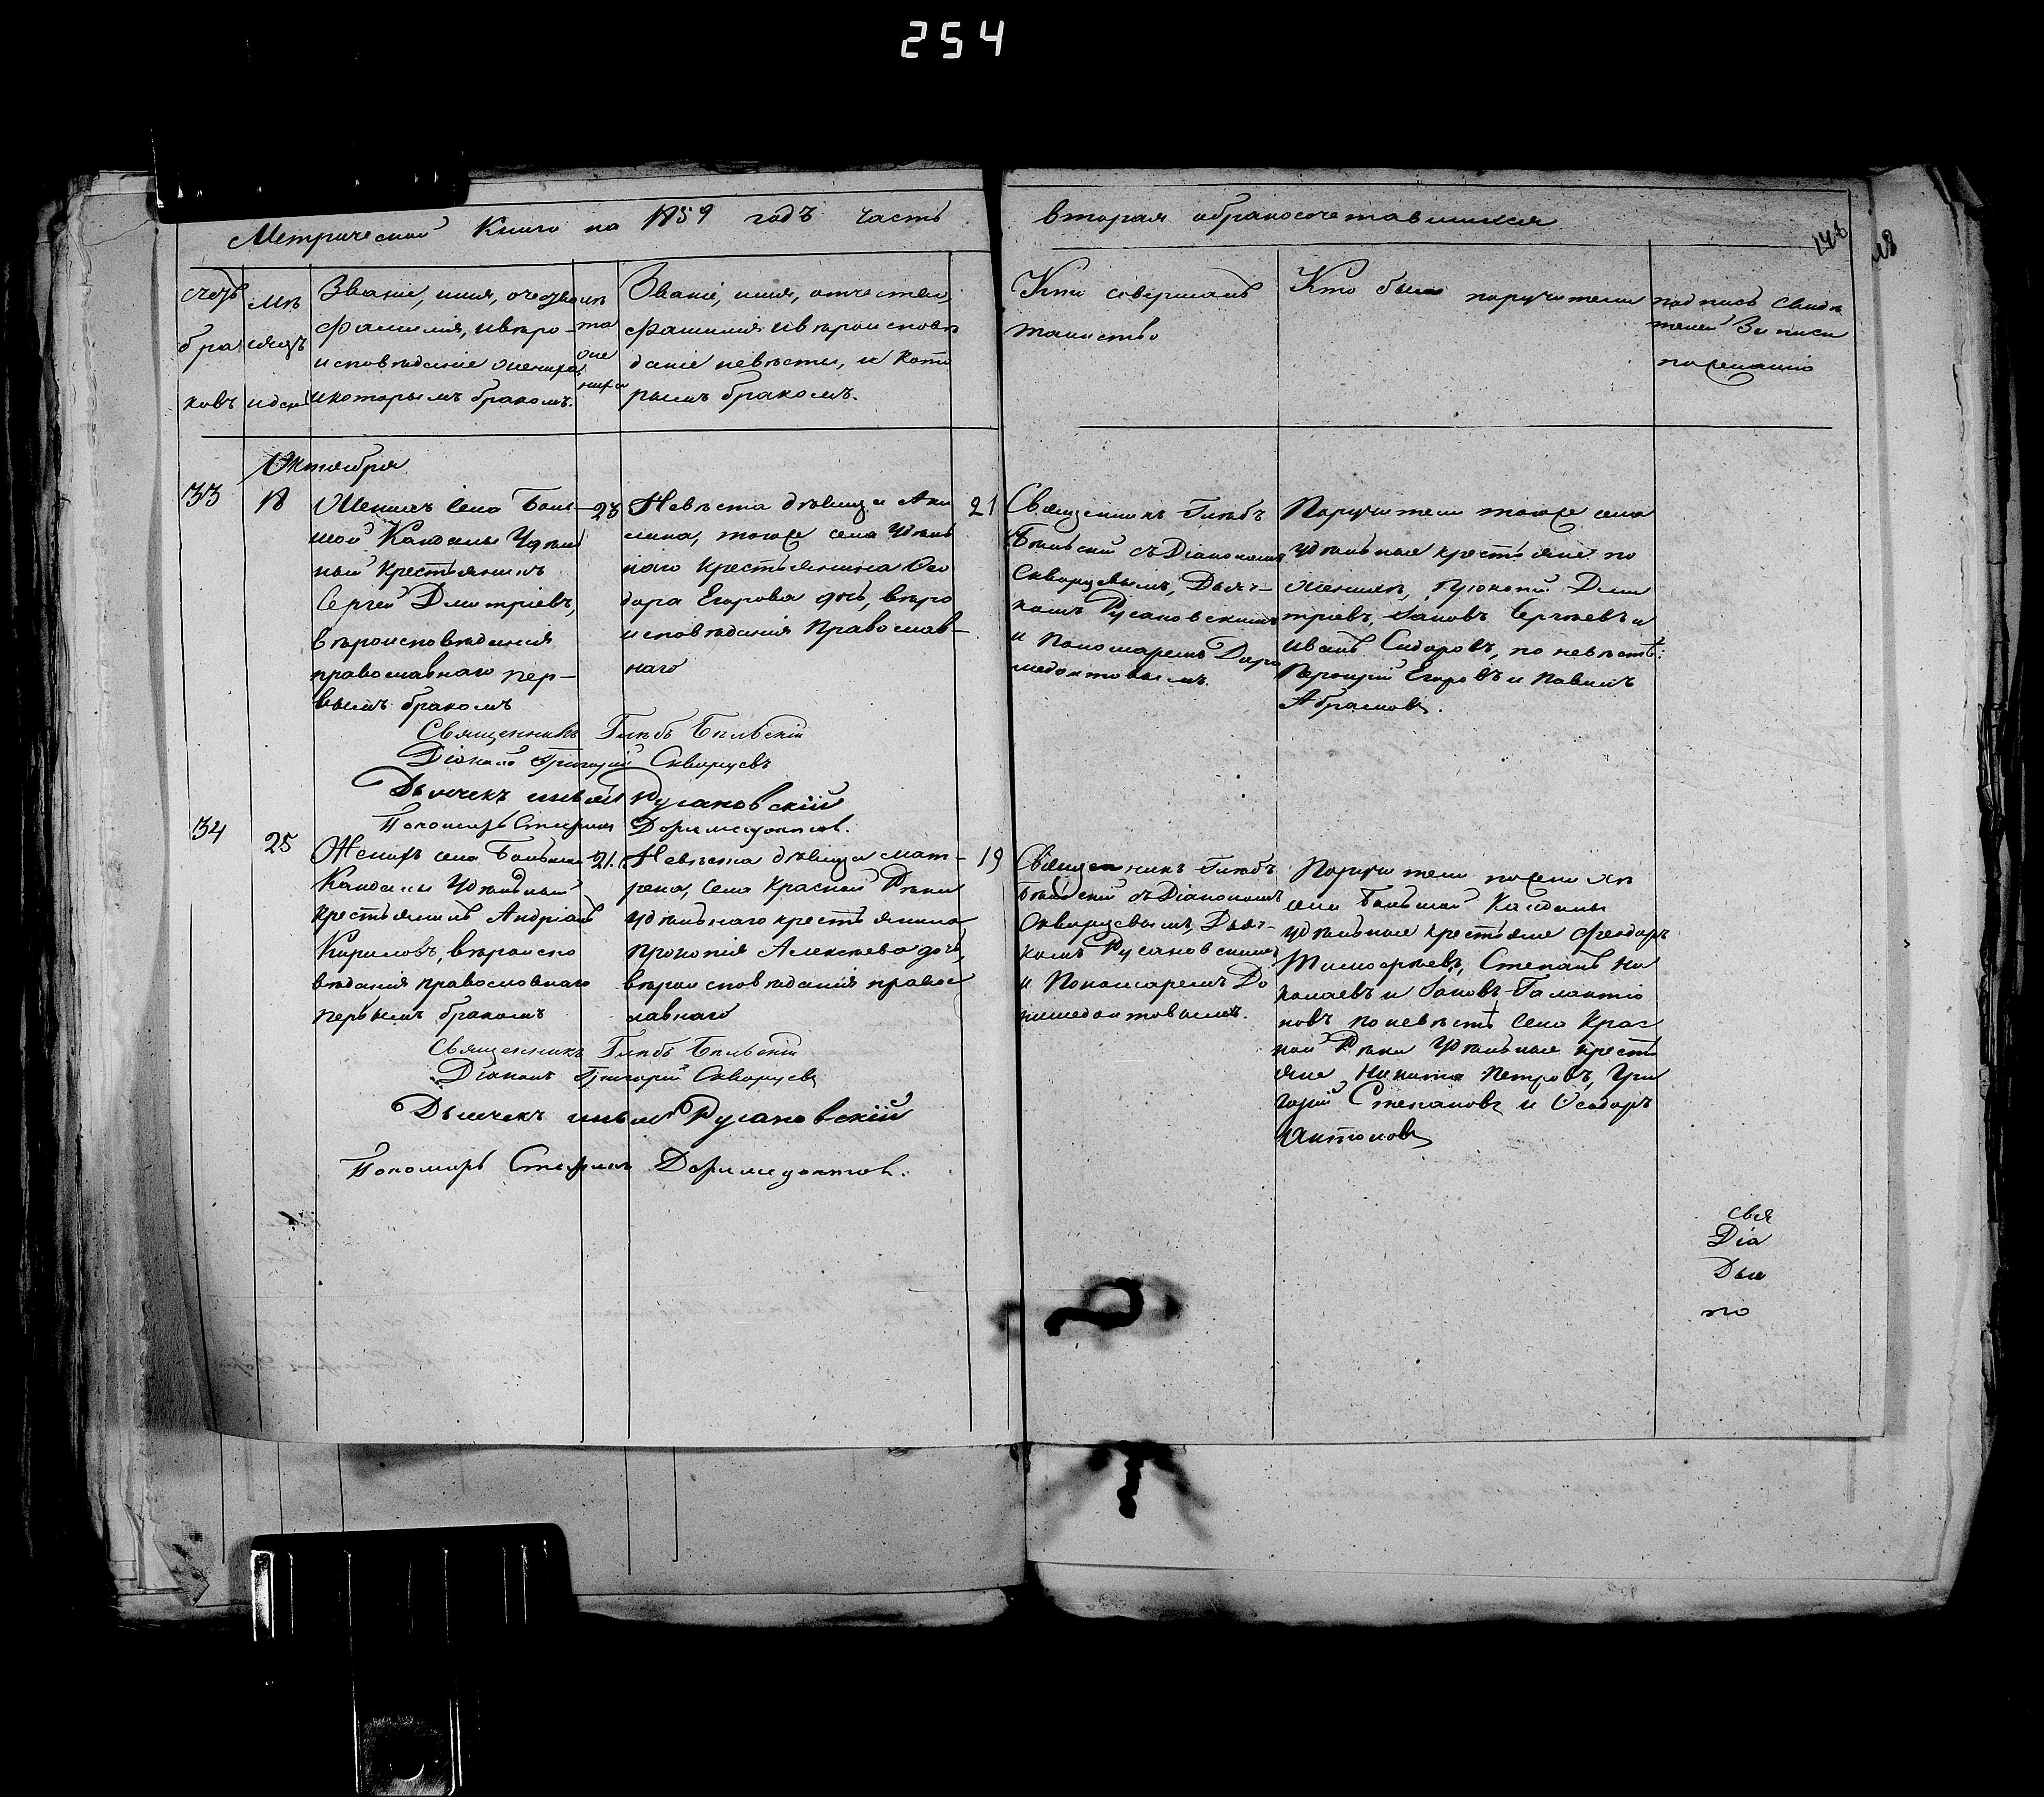 254
Метрической Книги на 1859 годъ часть
вторая о бракосочетавшихся
148
118
счетъ браковъ
Мѣсяцъ и день
Званіе, имя, отчество,
фамилія, и вѣро-
исповѣданіе жениха,
и которымъ бракомъ.
лѣта жениха
Званіе, имя, отчество,
фамилія и вѣроисповѣ
даніе невѣсты, и кото
рымъ бракомъ.
Кто совершалъ
таинство
Кто были поручители
подпись свидѣ
телей Записи
по желанію
Октября
33
18
Женихъ села Боль-
шой Кандалы Удѣль
ный крестьянинъ
Сергей Дмитріевъ,
вѣроисповѣданія
православнаго пер-
вымъ бракомъ
28
Невѣста дѣвица Аки
лина, тогоже села Удѣль
наго крестьянина Ѳео
дора Егорова дочь, вѣро
исповѣданія Православ-
наго
21
Священникъ Глѣбъ
Бѣльский съ Діакономъ
Скворцовымъ, Дьяч-
комъ Русановскимъ
и Пономаремъ Дори
медонтовымъ.
Поручители тогоже села
удѣльные крестьяне по
женихѣ, Дми
тріевъ, Іаковъ Сергѣевъ и
Иванъ Сидоровъ, по невѣстѣ:
Егоровъ и Павелъ
Абрамовъ.
Священникъ Глѣбъ Бѣльскій
Діаконъ Григорій Скворцовъ
Дьячекъ Русановскій
Пономарь Стефанъ Доримедонтов.
34
25
Женихъ села Большой
Кандалы Удѣльный
крестьянинъ Андріанъ
Кириловъ, вѣроиспо
вѣданія православнаго
первымъ бракомъ
21.
Невѣста дѣвица мат-
рена, села Красной Рѣки
удѣльнаго крестьянина
Прокопія Алексѣева дочь,
вѣроисповѣданія правос
лавнаго
19
Священникъ Глѣбъ
Бѣльский съ Діакономъ
Скворцовымъ, Дьяч-
комъ Русановскимъ
и Пономаремъ До
римедонтовымъ.
Поручители по женихѣ
села Большой Кандалы
удѣльные крестьяне Феодоръ
Тимофѣевъ, Степанъ Ни
колаевъ и Іаковъ Галактіо
новъ по невѣстѣ села Крас
ной Рѣки Удѣльные крестъ
яне Никита Петровъ, Гри
горій Степановъ и Ѳеодоръ
Антоновъ
Священникъ Глѣбъ Бѣльскій
Діаконъ Григорій Скворцовъ
Дьячекъ Русановскій
Пономарь Стефанъ Доримедонтов.
Свя
Діа
Дья
по